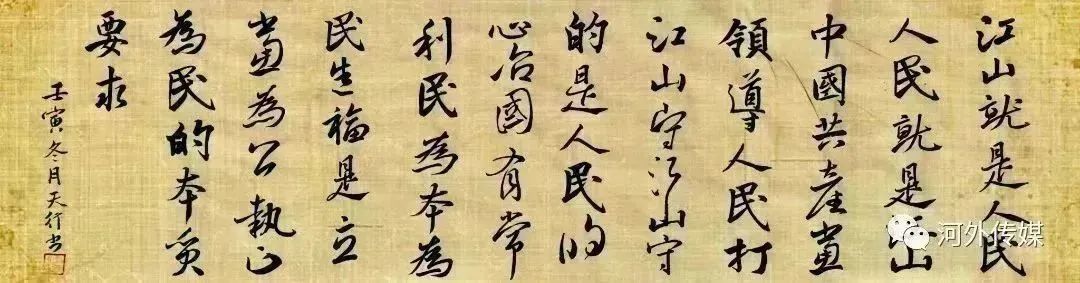 江山就是人民
人民就是江山
中國共產黨
領導人民打
江山守江山守
的是人民的
心治國有常
利民為本為
民造福是立
黨為公執政
為民的本質
要求
壬寅冬月天行书
河外传媒